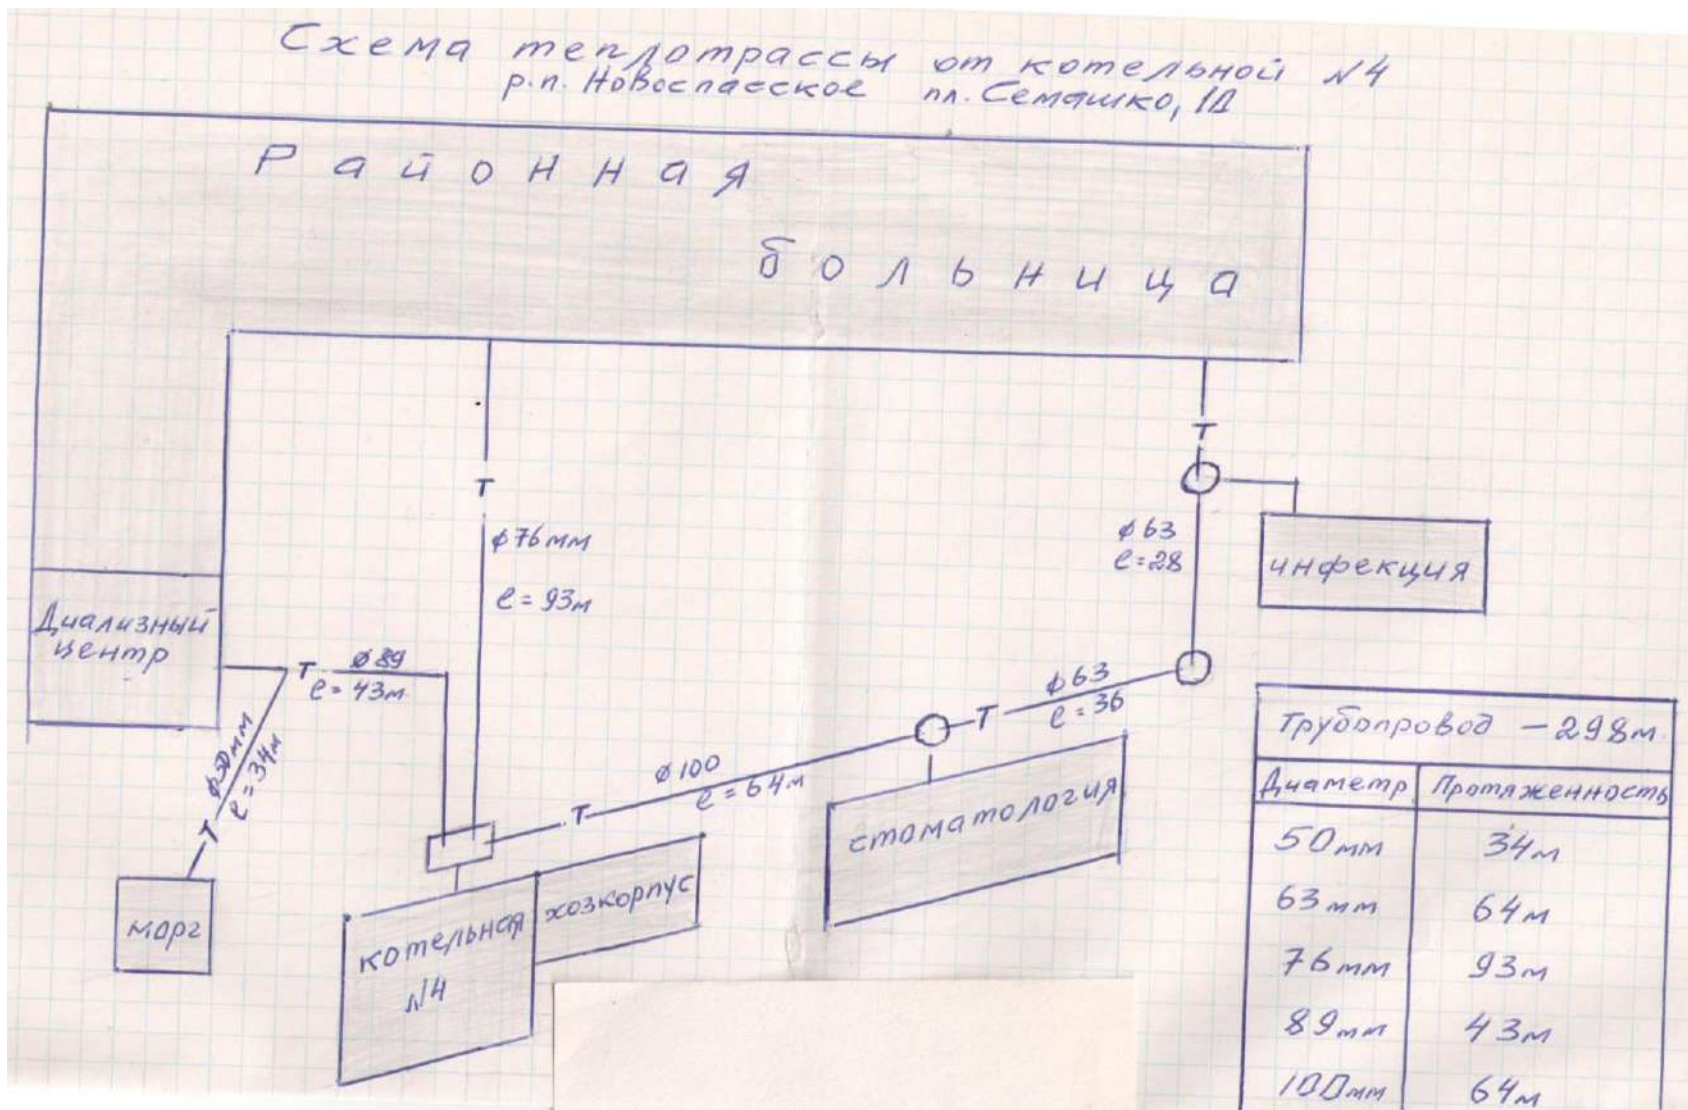 Схема теплотрассы от котельной №4
р.п. Новоспасское пл. Семашко, 1Д
Районная
больница
Т
Т
ф76мм
ф63
е=28
инфекция
е=93м
Диализный
центр
Т
ф89
е=43м
ф63
е=36
Т
ф50мм
е=34м
Т
ф100
е=64м
Т
стоматология
морг
котельная
№4
хозкорпус
Трубопровод – 298м.
Диаметр Протяженность
50мм 34м
63мм 64м
76мм 93м
89мм 43м
100мм 64м